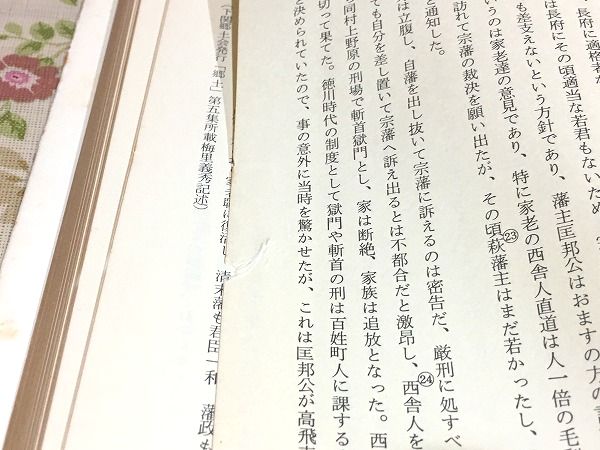 は長府に適格な
は長府にその頃適当な若君もないため
も差支えないという方針であり、藩主匡邦公はおますの方の
いうのは家老達の意見であり、特に家老の西舎人直道は人一倍の毛
訪れて宗藩の裁決を願い出たが、その頃萩藩主はまだ若かったし、
㉓
と通知した。
は立腹し、自藩を出し抜いて宗藩に訴えるのは密告だ、厳刑に処すべ
ても自分を差し置いて宗藩へ訴え出るとは不都合だと激昂し、西舎人を
㉔
同村上野原の刑場で斬首獄門とし、家は断絶、家族は追放となった。西
切って果てた。徳川時代の制度として獄門や斬首の刑は百姓町人に課する
と決められていたので、事の意外に当時を驚かせたが、これは匡邦公が高飛
は復活し、清末藩も君臣一和 藩政も
(下関郷土会発行「郷土」第五集所載梅里義秀記述)